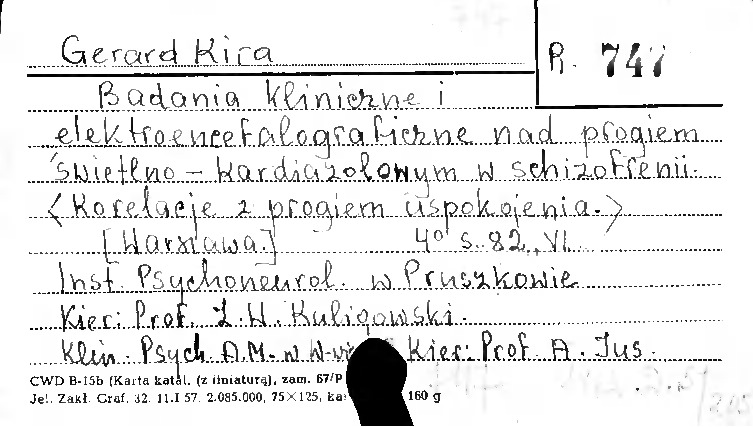 Gerard Kira
R. 747
Badania kliniczne i
elektroencefalograficzne nad progiem
świetlno - kardiazolowym w schizofrenii.
<Korelacje z progiem uspokojenia.>
[Warszawa.] 4° s. 82, VI.
Inst. Psychoneurol. w Pruszkowie
Kier: Prof. Z. W. Kuligowski.
Klin. Psych. A.M. w W-wie Kier: Prof. A. Jus.
CWD B-15b (Karta katal. (z liniaturą), zam. 67/P
Jel. Zakł. Graf. 32. 11.I 57. 2.085.000, 75×125, ka 160 g